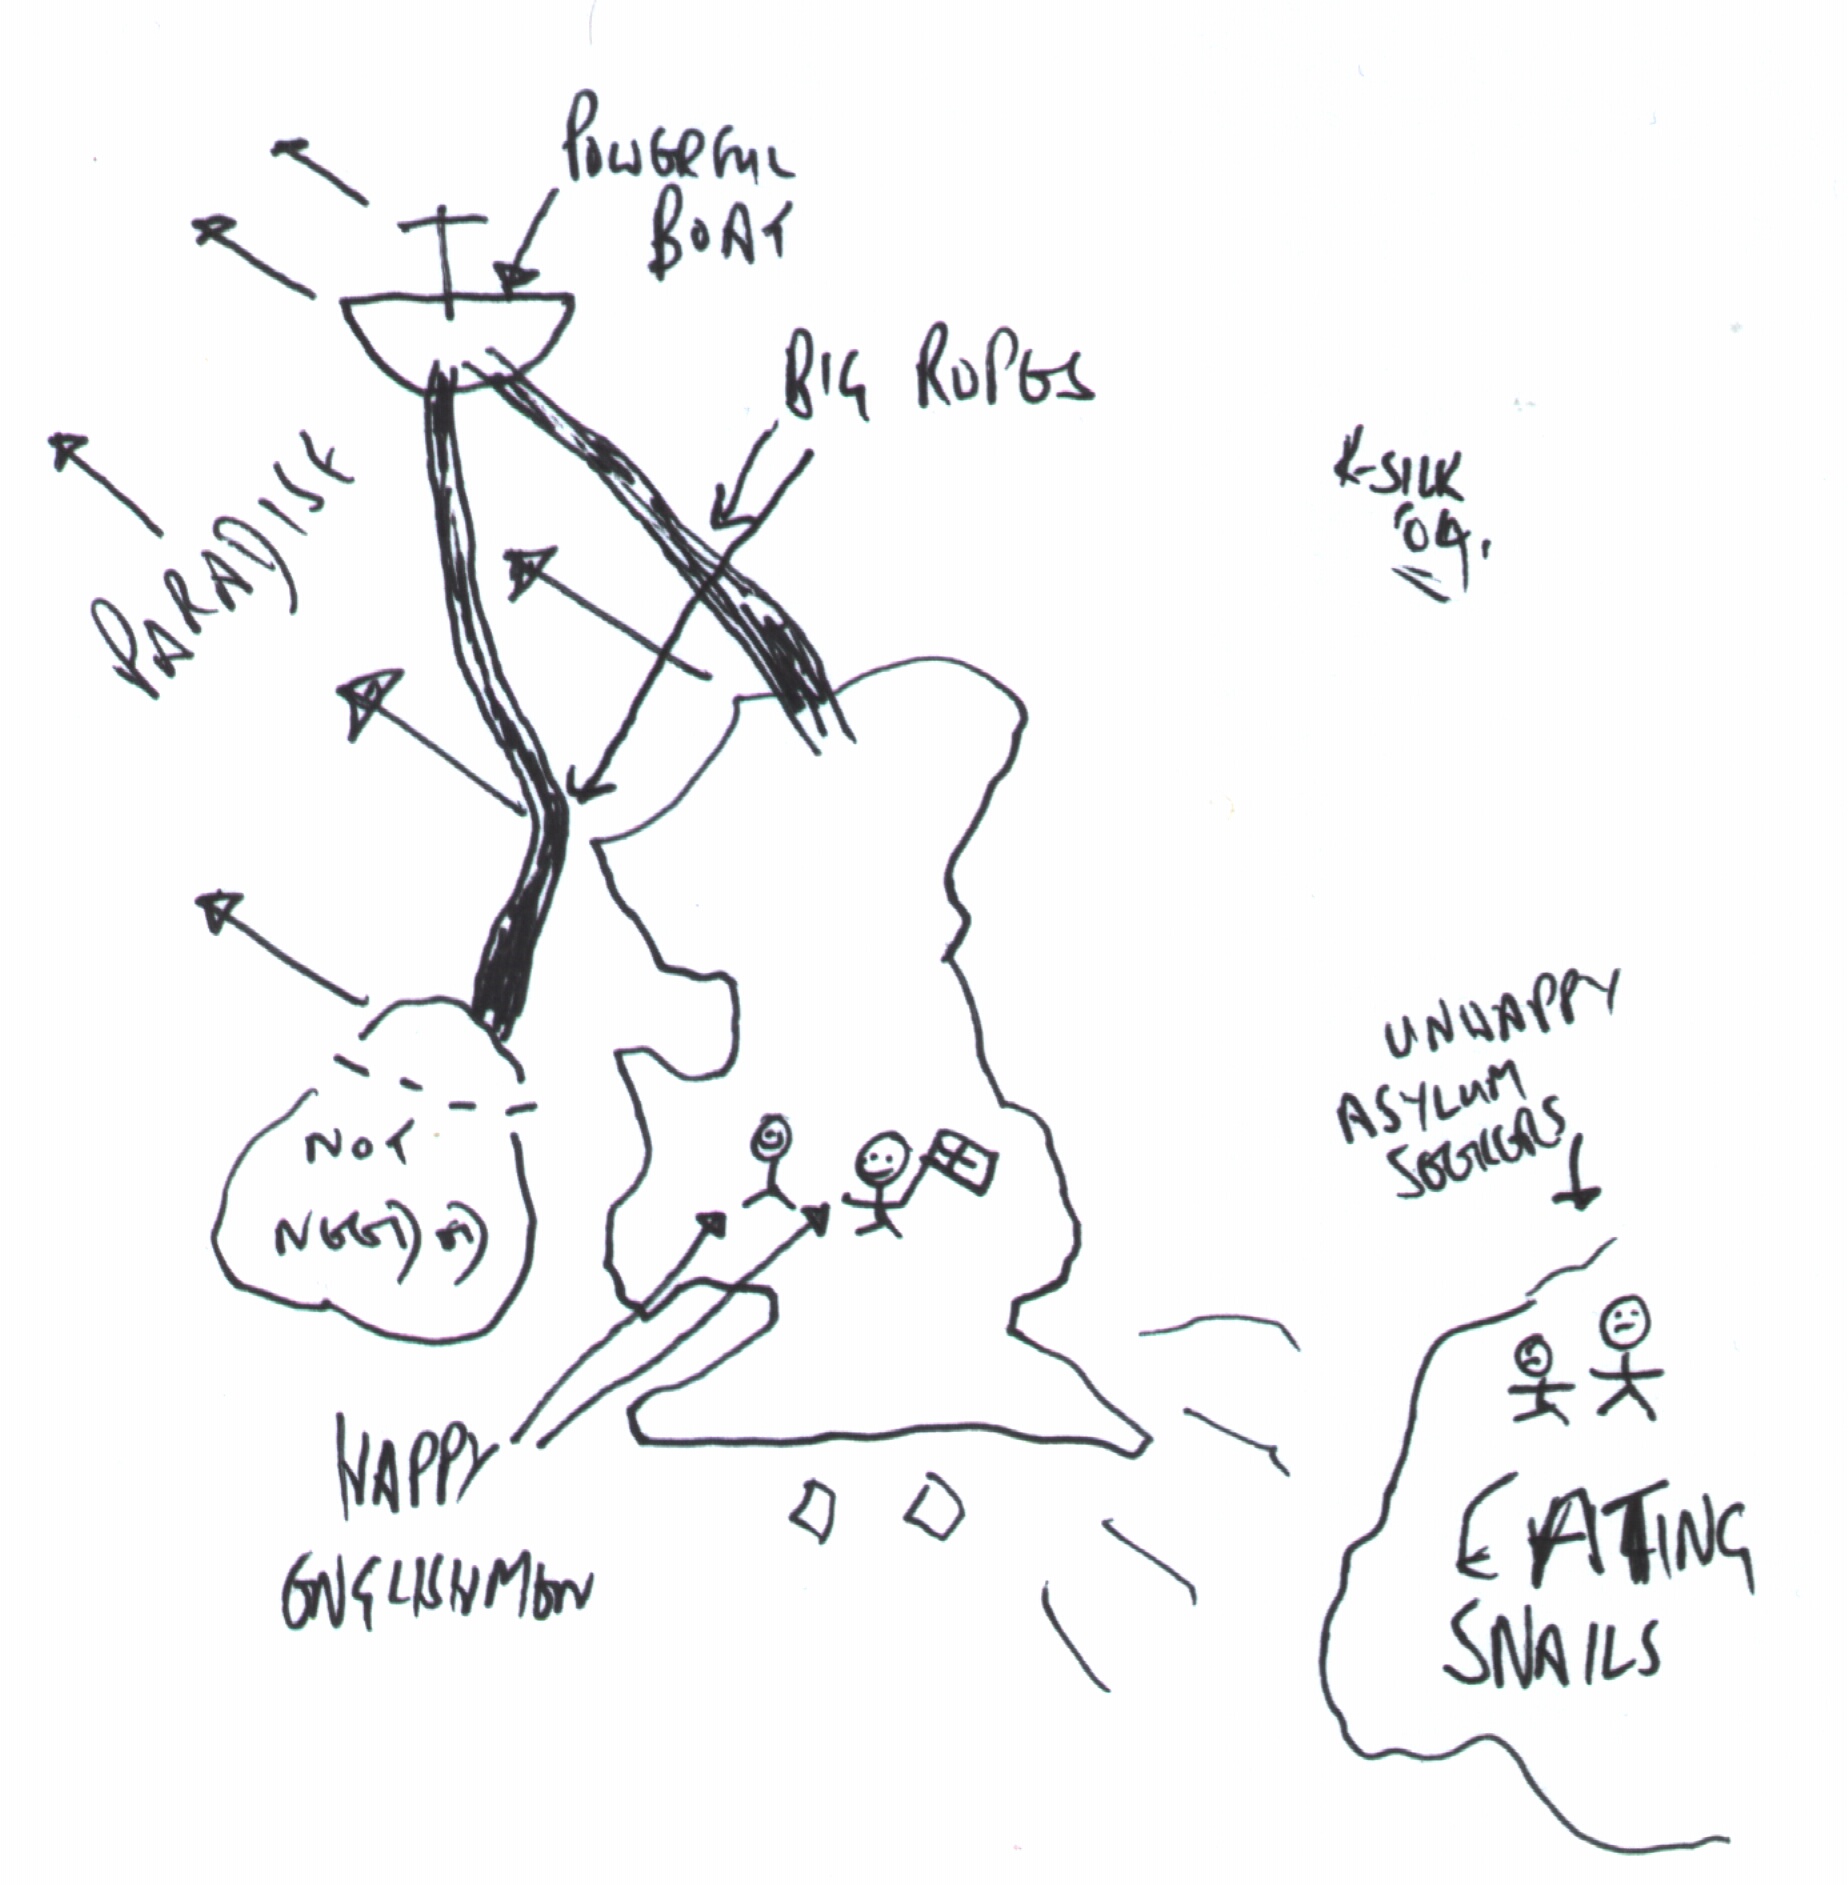 POWERFUL
BOAT
BIG ROPES
PARADISE
K-SILK
'04.
UNHAPPY
ASYLUM
SEEKERS
NOT
NEEDED
HAPPY
ENGLISHMEN
EATING
SNAILS